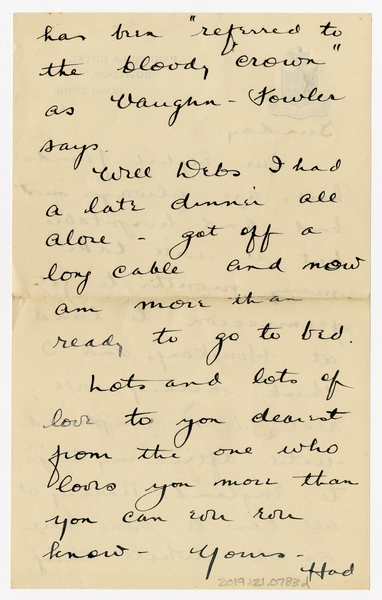 has been "referred to
the bloody crown"
as Vaughn-Fowler
says.
Well Debs I had
a late dinner all
alone - got off a
long cable and now
am more than
ready to go to bed.
Lots and lots of
love to you dearest
from the one who
loves you more than
you can ever ever
know - Yours -
Had
2019.121.0783d